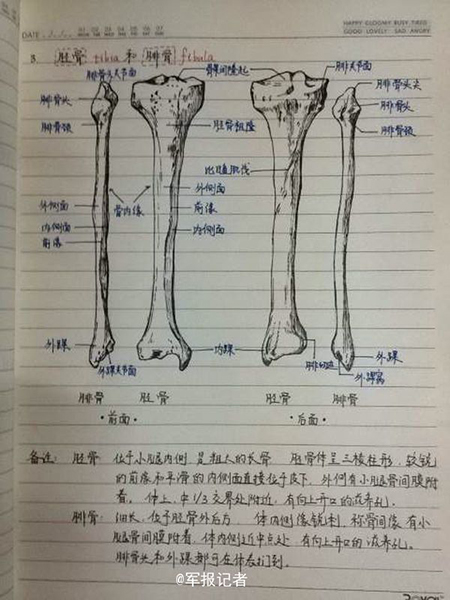 DATE
01 02 03 04 05 06 07
HAPPY GLOOMY BUSY TIRED
GOOD LOVELY SAD ANGRY
8. 胫骨 tibia 和 腓骨 fibula
腓骨头关节面
髁间隆起
腓关节面
腓骨头尖
腓骨头
腓骨头
腓骨颈
胫骨粗隆
腓骨颈
比目鱼肌线
外侧面
骨内缘
外侧面
前缘
内侧面
内侧面
前缘
外踝
内踝
外踝
外踝关节面
腓切迹
外踝窝
腓骨 胫骨
胫骨 腓骨
·前面·
·后面·
备注: 胫骨: 位于小腿内侧 是粗大的长骨 胫骨体呈三棱柱形,较锐
的前缘和平滑的内侧面直接位于皮下,外侧有小腿骨间膜附
着。体上,中1/3交界处附近,有向上开口的滋养孔。
腓骨: 细长,位于胫骨外后方, 体内侧缘锐利,称骨间缘 有小
腿骨间膜附着,体内侧近中点处,有向上开口的滋养孔。
腓骨头和外踝都可在体表扪到。
@军报记者